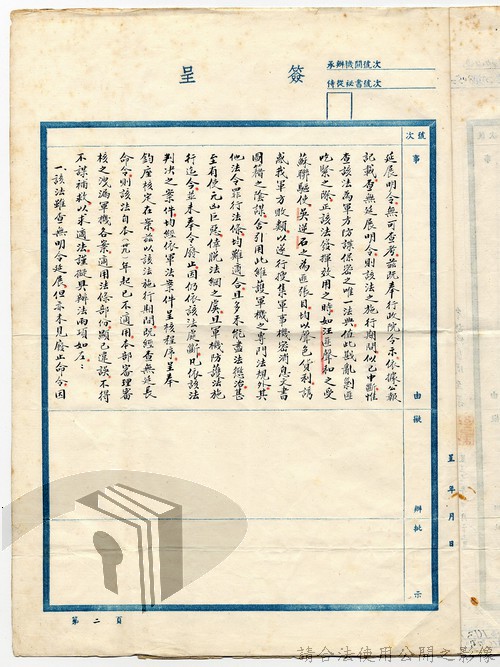 簽呈
承辦機關號次
侍從秘書號次
號次
事由
擬辦
批示
呈 年 月 日
延展明令無可查考茲既奉行政院令示依據公報
記載查無延展明令則該法之施行期間似已中斷惟
查該法為軍方防諜保密之唯一法典值此戡亂剿匪
吃緊之際正該法發揮效用之時如汪匪聲和之受
蘇聯驅使吳逆石之為匪張目均以聲色貨利誘
惑我軍方敗類以遂行搜集軍事機密消息文書
圖籍之陰謀舍引用此維護軍機之專門法規外其
他法令罪行法條均難適合且多未能盡法懲治甚
至有使元凶巨惡倖脫法網之虞且軍機防護法施
行迄今並未奉令廢止因仍依該法處斷凡依該法
判決之案件均經依軍法案件呈核程序呈奉
鈞座核定在案茲以該法施行期間既經查無延長
命令則該法自本(卅九)年起已不適用本部審理審
核之洩漏軍機各案適用法條部份顯已違誤不得
不謀補救以求適法謹擬具辦法兩項如左：
一、該法雖查無明令延展但亦未見廢止命令因
第二頁
請合法使用公開之影像